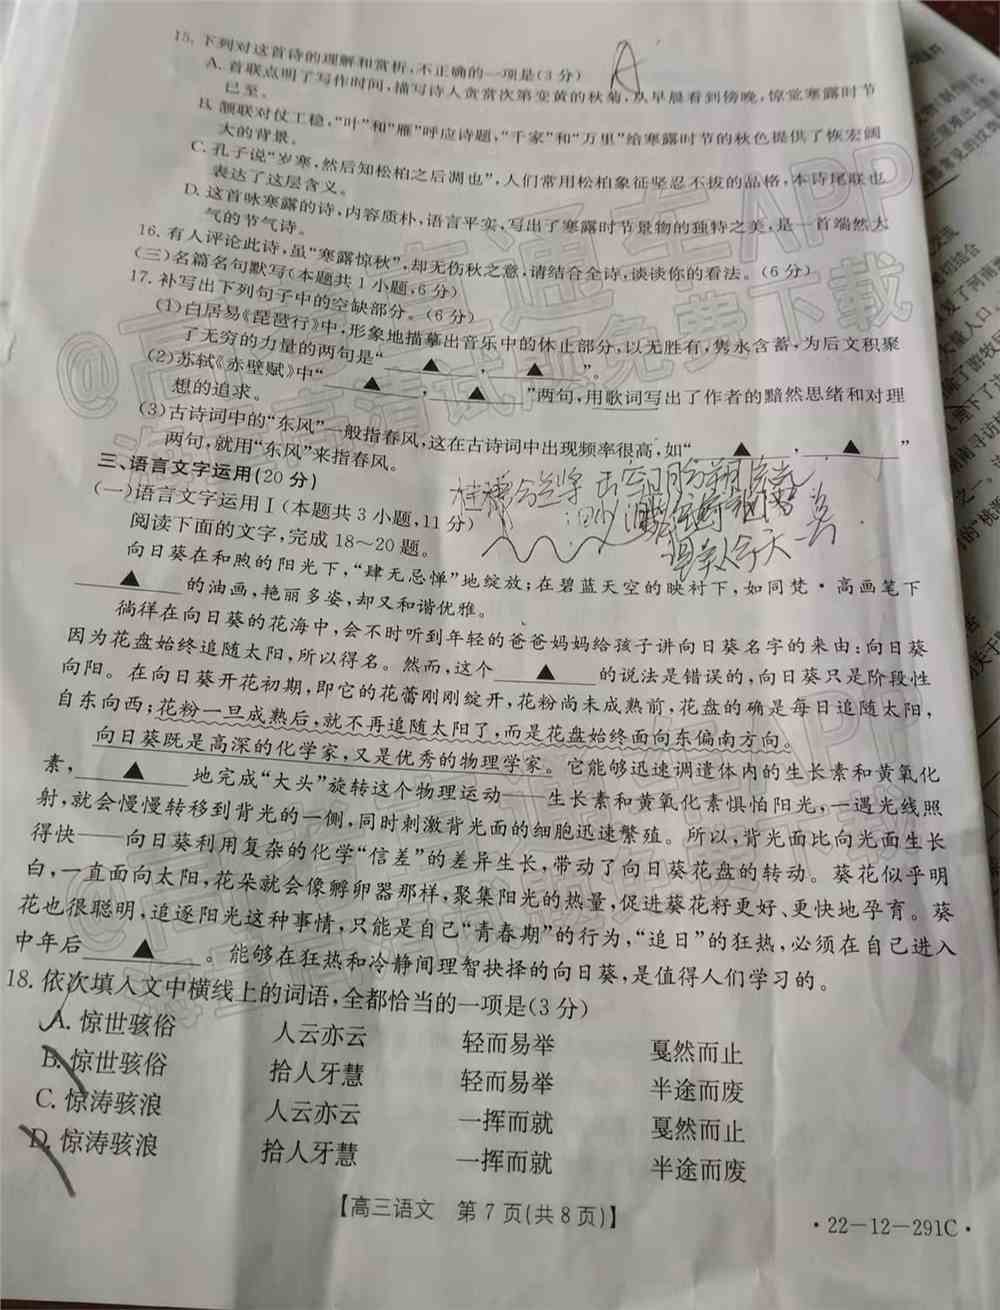 15. 下列对这首诗的理解和赏析,不正确的一项是(3分)
A
A. 首联点明了写作时间,描写诗人贪赏次第变黄的秋菊,从早晨看到傍晚,惊觉寒露时节
已至。
B. 颔联对仗工稳,“叶”和“雁”呼应诗题,“千家”和“万里”给寒露时节的秋色提供了恢宏阔
大的背景。
C. 孔子说“岁寒,然后知松柏之后凋也”,人们常用松柏象征坚忍不拔的品格,本诗尾联也
表达了这层含义。
D. 这首咏寒露的诗,内容质朴,语言平实,写出了寒露时节景物的独特之美,是一首端然大
气的节气诗。
16. 有人评论此诗,虽“寒露惊秋”,却无伤秋之意,请结合全诗,谈谈你的看法。(6分)
(三)名篇名句默写(本题共1小题,6分)
17. 补写出下列句子中的空缺部分。(6分)
(1)白居易《琵琶行》中,形象地描摹出音乐中的休止部分,以无胜有,隽永含蓄,为后文积聚
了无穷的力量的两句是“▲,▲”。
(2)苏轼《赤壁赋》中“▲,▲”两句,用歌词写出了作者的黯然思绪和对理
想的追求。
(3)古诗词中的“东风”一般指春风,这在古诗词中出现频率很高,如“▲,▲”
两句,就用“东风”来指春风。
三、语言文字运用(20分)
(一)语言文字运用Ⅰ(本题共3小题,11分)
阅读下面的文字,完成18~20题。
向日葵在和煦的阳光下,“肆无忌惮”地绽放;在碧蓝天空的映衬下,如同梵·高画笔下
▲的油画,艳丽多姿,却又和谐优雅。
徜徉在向日葵的花海中,会不时听到年轻的爸爸妈妈给孩子讲向日葵名字的来由:向日葵
因为花盘始终追随太阳,所以得名。然而,这个▲的说法是错误的,向日葵只是阶段性
向阳。在向日葵开花初期,即它的花蕾刚刚绽开,花粉尚未成熟前,花盘的确是每日追随太阳,
自东向西;花粉一旦成熟后,就不再追随太阳了,而是花盘始终面向东偏南方向。
向日葵既是高深的化学家,又是优秀的物理学家。它能够迅速调遣体内的生长素和黄氧化
素,▲地完成“大头”旋转这个物理运动——生长素和黄氧化素惧怕阳光,一遇光线照
射,就会慢慢转移到背光的一侧,同时刺激背光面的细胞迅速繁殖。所以,背光面比向光面生长
得快——向日葵利用复杂的化学“信差”的差异生长,带动了向日葵花盘的转动。葵花似乎明
白,一直面向太阳,花朵就会像孵卵器那样,聚集阳光的热量,促进葵花籽更好、更快地孕育。葵
花也很聪明,追逐阳光这种事情,只能是自己“青春期”的行为,“追日”的狂热,必须在自己进入
中年后▲。能够在狂热和冷静间理智抉择的向日葵,是值得人们学习的。
18. 依次填入文中横线上的词语,全都恰当的一项是(3分)
A. 惊世骇俗 人云亦云 轻而易举 戛然而止
B. 惊世骇俗 拾人牙慧 轻而易举 半途而废
C. 惊涛骇浪 人云亦云 一挥而就 戛然而止
D. 惊涛骇浪 拾人牙慧 一挥而就 半途而废
【高三语文 第7页(共8页)】
·22-12-291C·